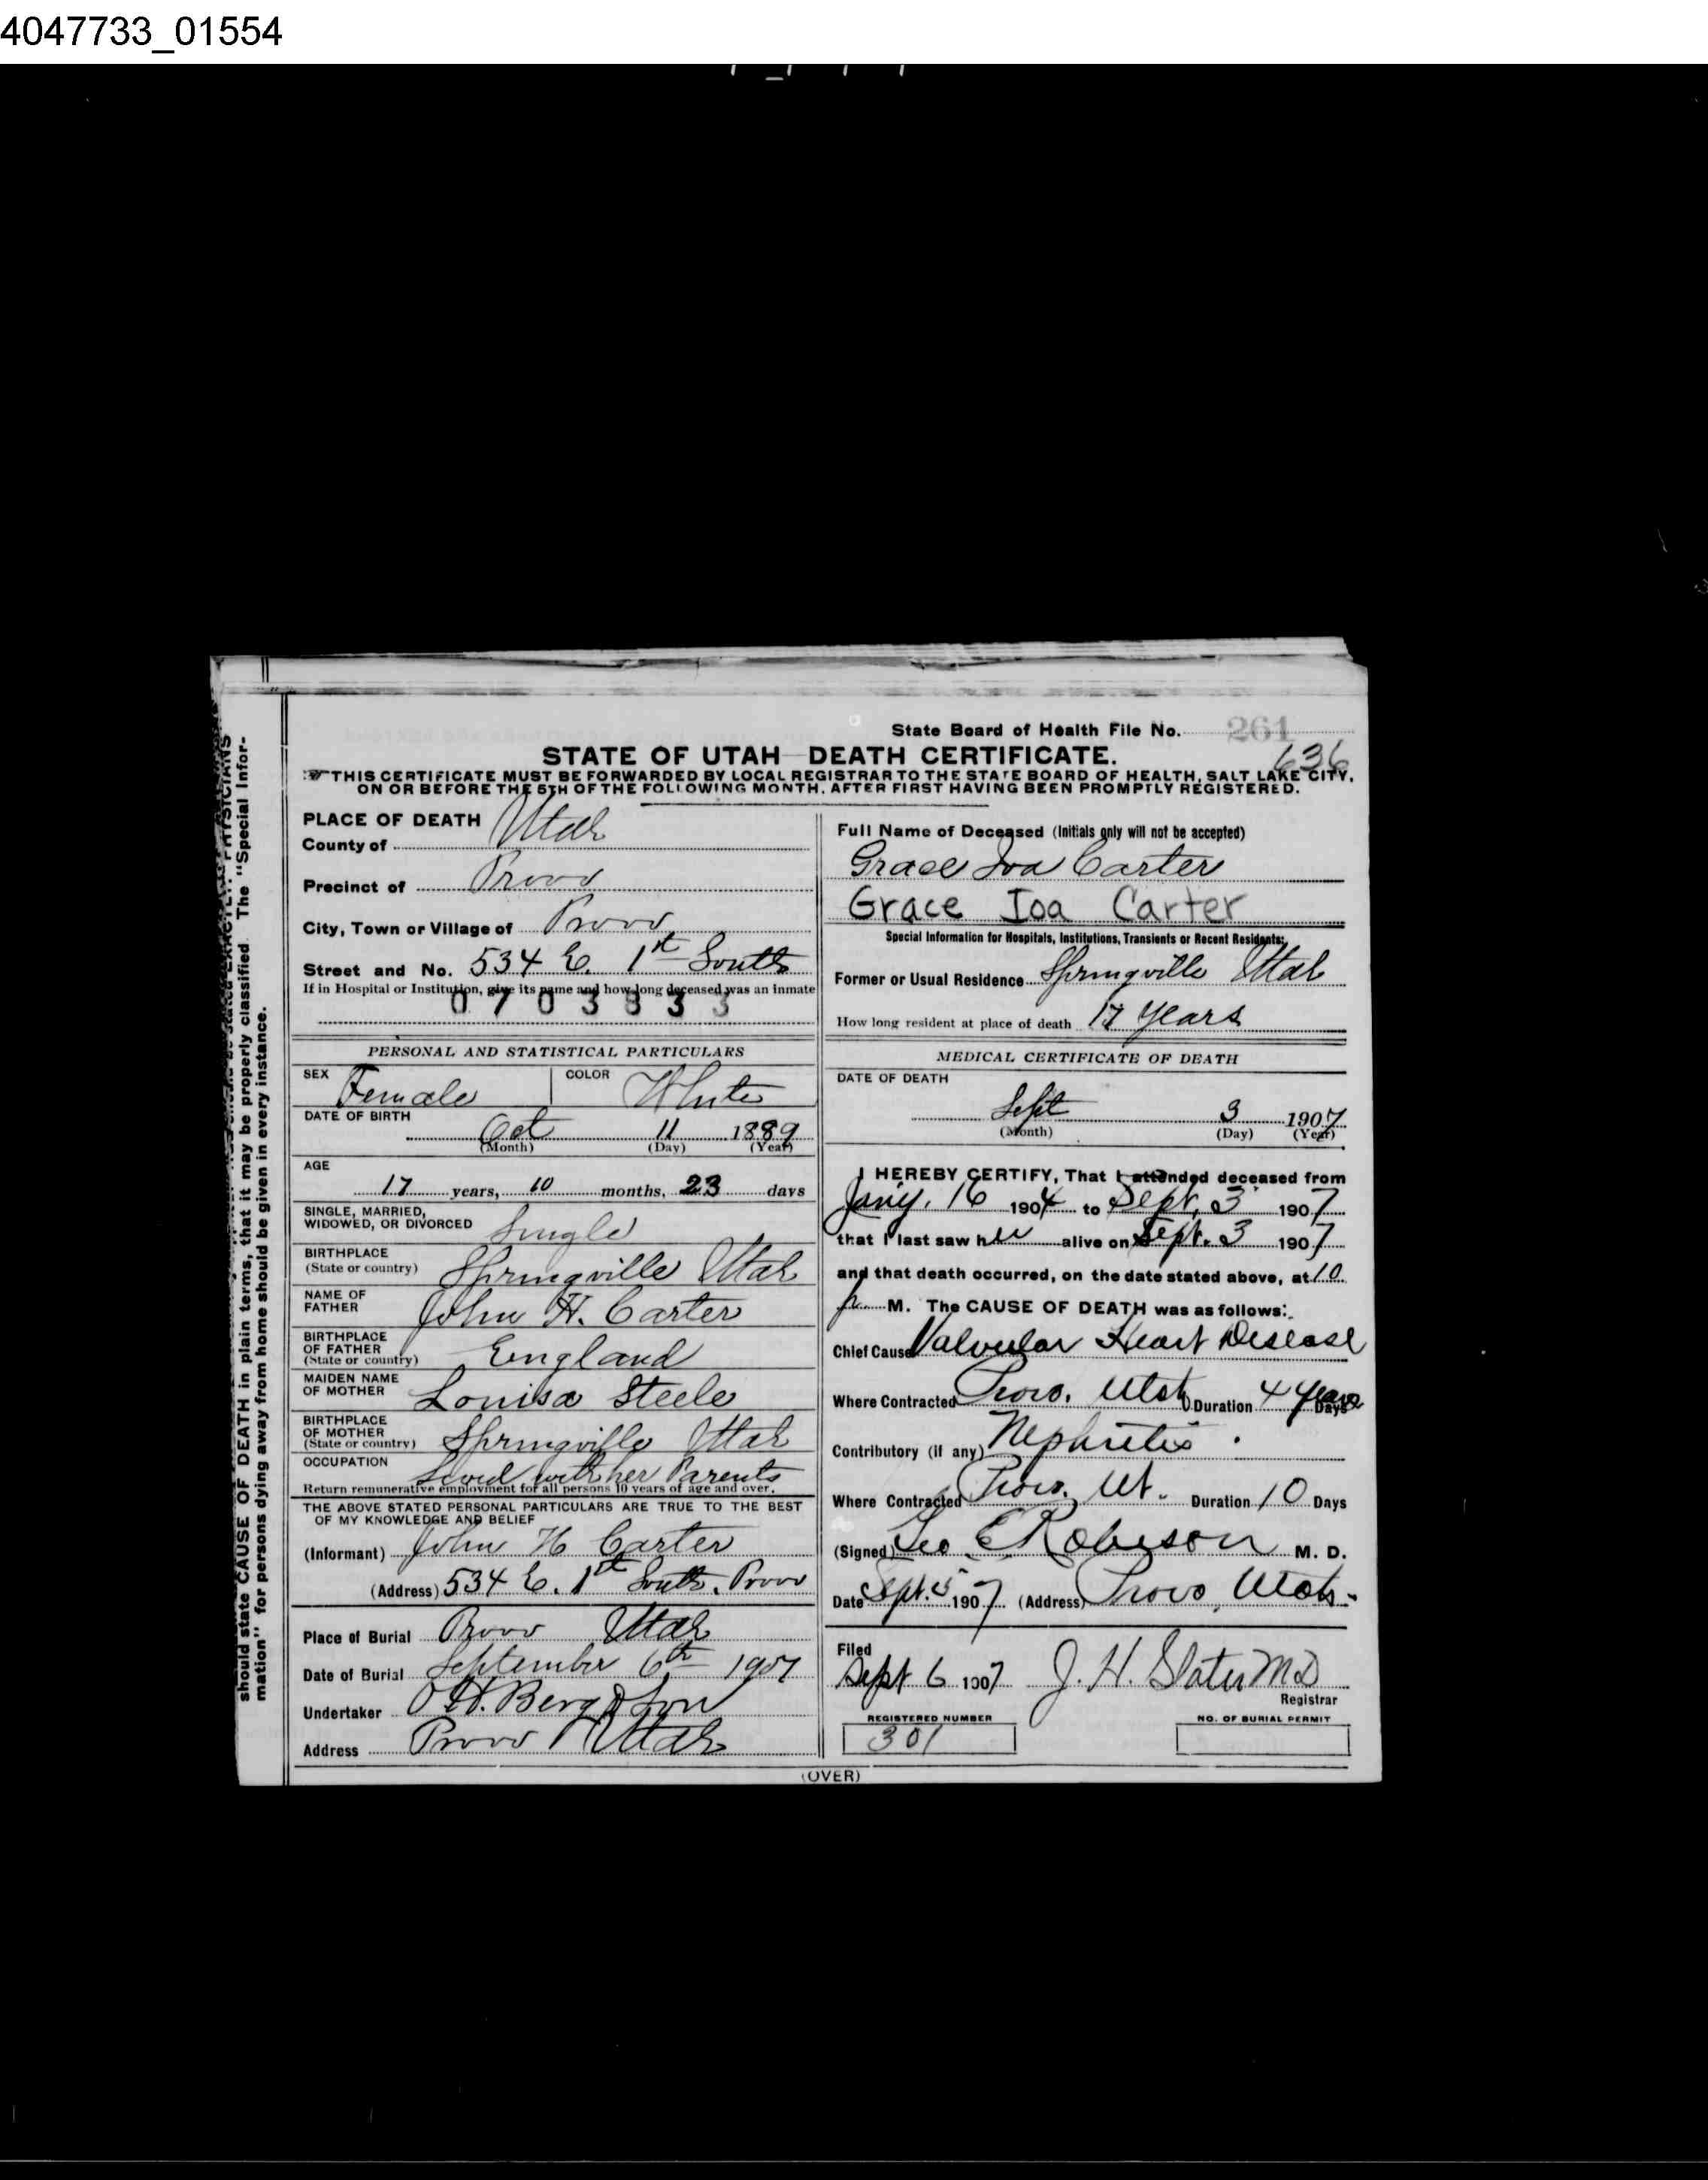 4047733_01554
State Board of Health File No. 261
636
STATE OF UTAH DEATH CERTIFICATE.
THIS CERTIFICATE MUST BE FORWARDED BY LOCAL REGISTRAR TO THE STATE BOARD OF HEALTH, SALT LAKE CITY,
ON OR BEFORE THE 5TH OF THE FOLLOWING MONTH, AFTER FIRST HAVING BEEN PROMPTLY REGISTERED.
PLACE OF DEATH
County of Utah
Precinct of Provo
City, Town or Village of Provo
Street and No. 534 E. 1st South
If in Hospital or Institution, give its name and how long deceased was an inmate
PERSONAL AND STATISTICAL PARTICULARS
SEX Female COLOR White
DATE OF BIRTH
Oct 11 1889
(Month) (Day) (Year)
AGE
17 years, 10 months, 23 days
SINGLE, MARRIED,
WIDOWED, OR DIVORCED Single
BIRTHPLACE
(State or country) Springville Utah
NAME OF
FATHER John H. Carter
BIRTHPLACE
OF FATHER
(State or country) England
MAIDEN NAME
OF MOTHER Louisa Steele
BIRTHPLACE
OF MOTHER
(State or country) Springville Utah
OCCUPATION Lived with her Parents
Return remunerative employment for all persons 10 years of age and over.
THE ABOVE STATED PERSONAL PARTICULARS ARE TRUE TO THE BEST
OF MY KNOWLEDGE AND BELIEF
(Informant) John H Carter
(Address) 534 E. 1st South. Provo
Place of Burial Provo Utah
Date of Burial September 6th 1907
Undertaker O H. Berg & Son
Address Provo Utah
Full Name of Deceased (Initials only will not be accepted)
Grace Ioa Carter
Grace Ioa Carter
Special Information for Hospitals, Institutions, Transients or Recent Residents:
Former or Usual Residence Springville Utah
How long resident at place of death 17 years
MEDICAL CERTIFICATE OF DEATH
DATE OF DEATH
Sept 3 1907
(Month) (Day) (Year)
I HEREBY CERTIFY, That I attended deceased from
Jany. 16 1904 to Sept. 3 1907
that I last saw her alive on Sept. 3 1907
and that death occurred, on the date stated above, at 10
p M. The CAUSE OF DEATH was as follows:
Chief Cause Valvular Heart Disease
Where Contracted Provo, Utah Duration 4 years Days
Contributory (if any) Nephritis.
Where Contracted Provo, Ut. Duration 10 Days
(Signed) Geo. E Robison M. D.
Date Sept. 5 1907 (Address) Provo, Utah.
Filed
Sept 6 1907 J. H. Slater MD
Registrar
REGISTERED NUMBER NO. OF BURIAL PERMIT
301
(OVER)
should state CAUSE OF DEATH in plain terms, that it may be properly classified. The "Special Infor-
mation" for persons dying away from home should be given in every instance.